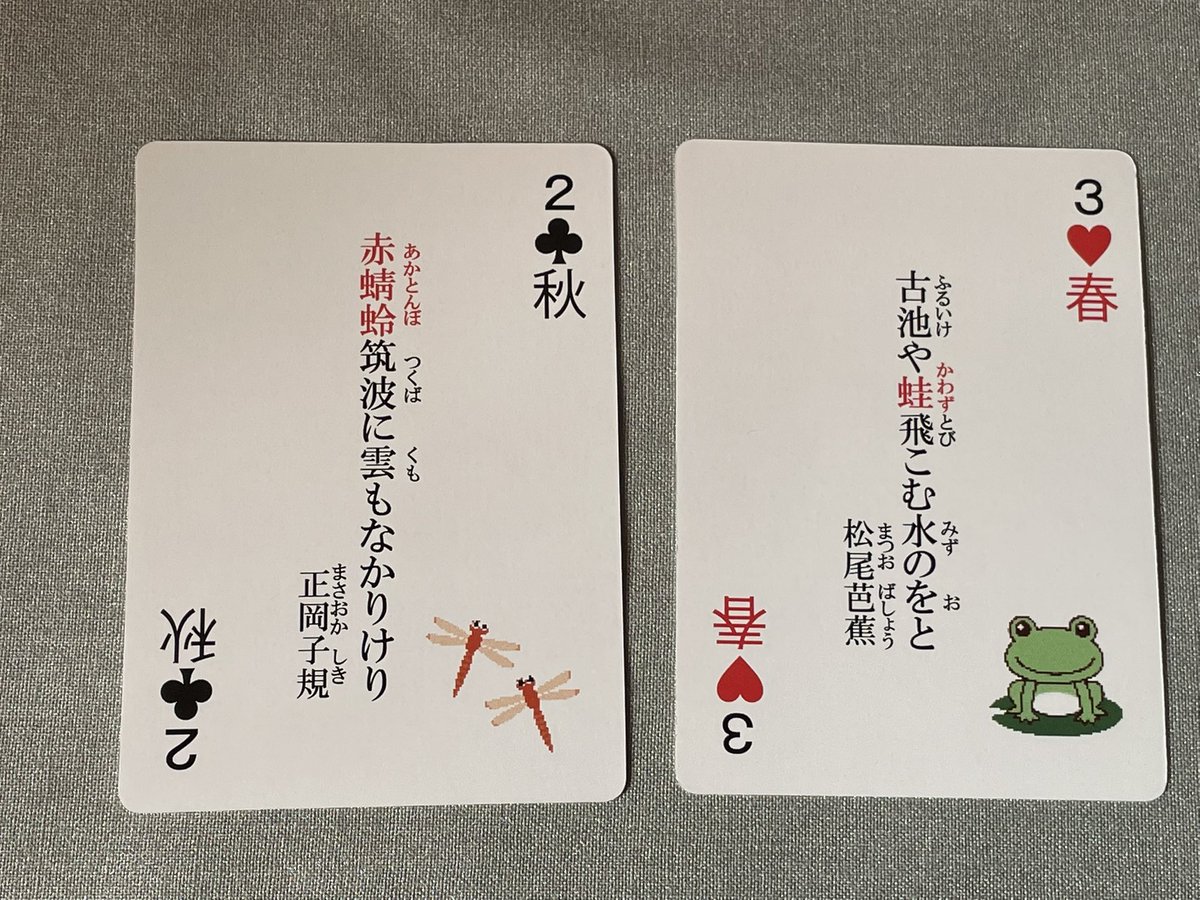 2
秋
赤蜻蛉筑波に雲もなかりけり
あかとんぼ つくば くも
正岡子規
まさおか しき
秋
2
3
春
古池や蛙飛こむ水のをと
ふるいけ かわず とび みず お
松尾芭蕉
まつお ばしょう
春
3